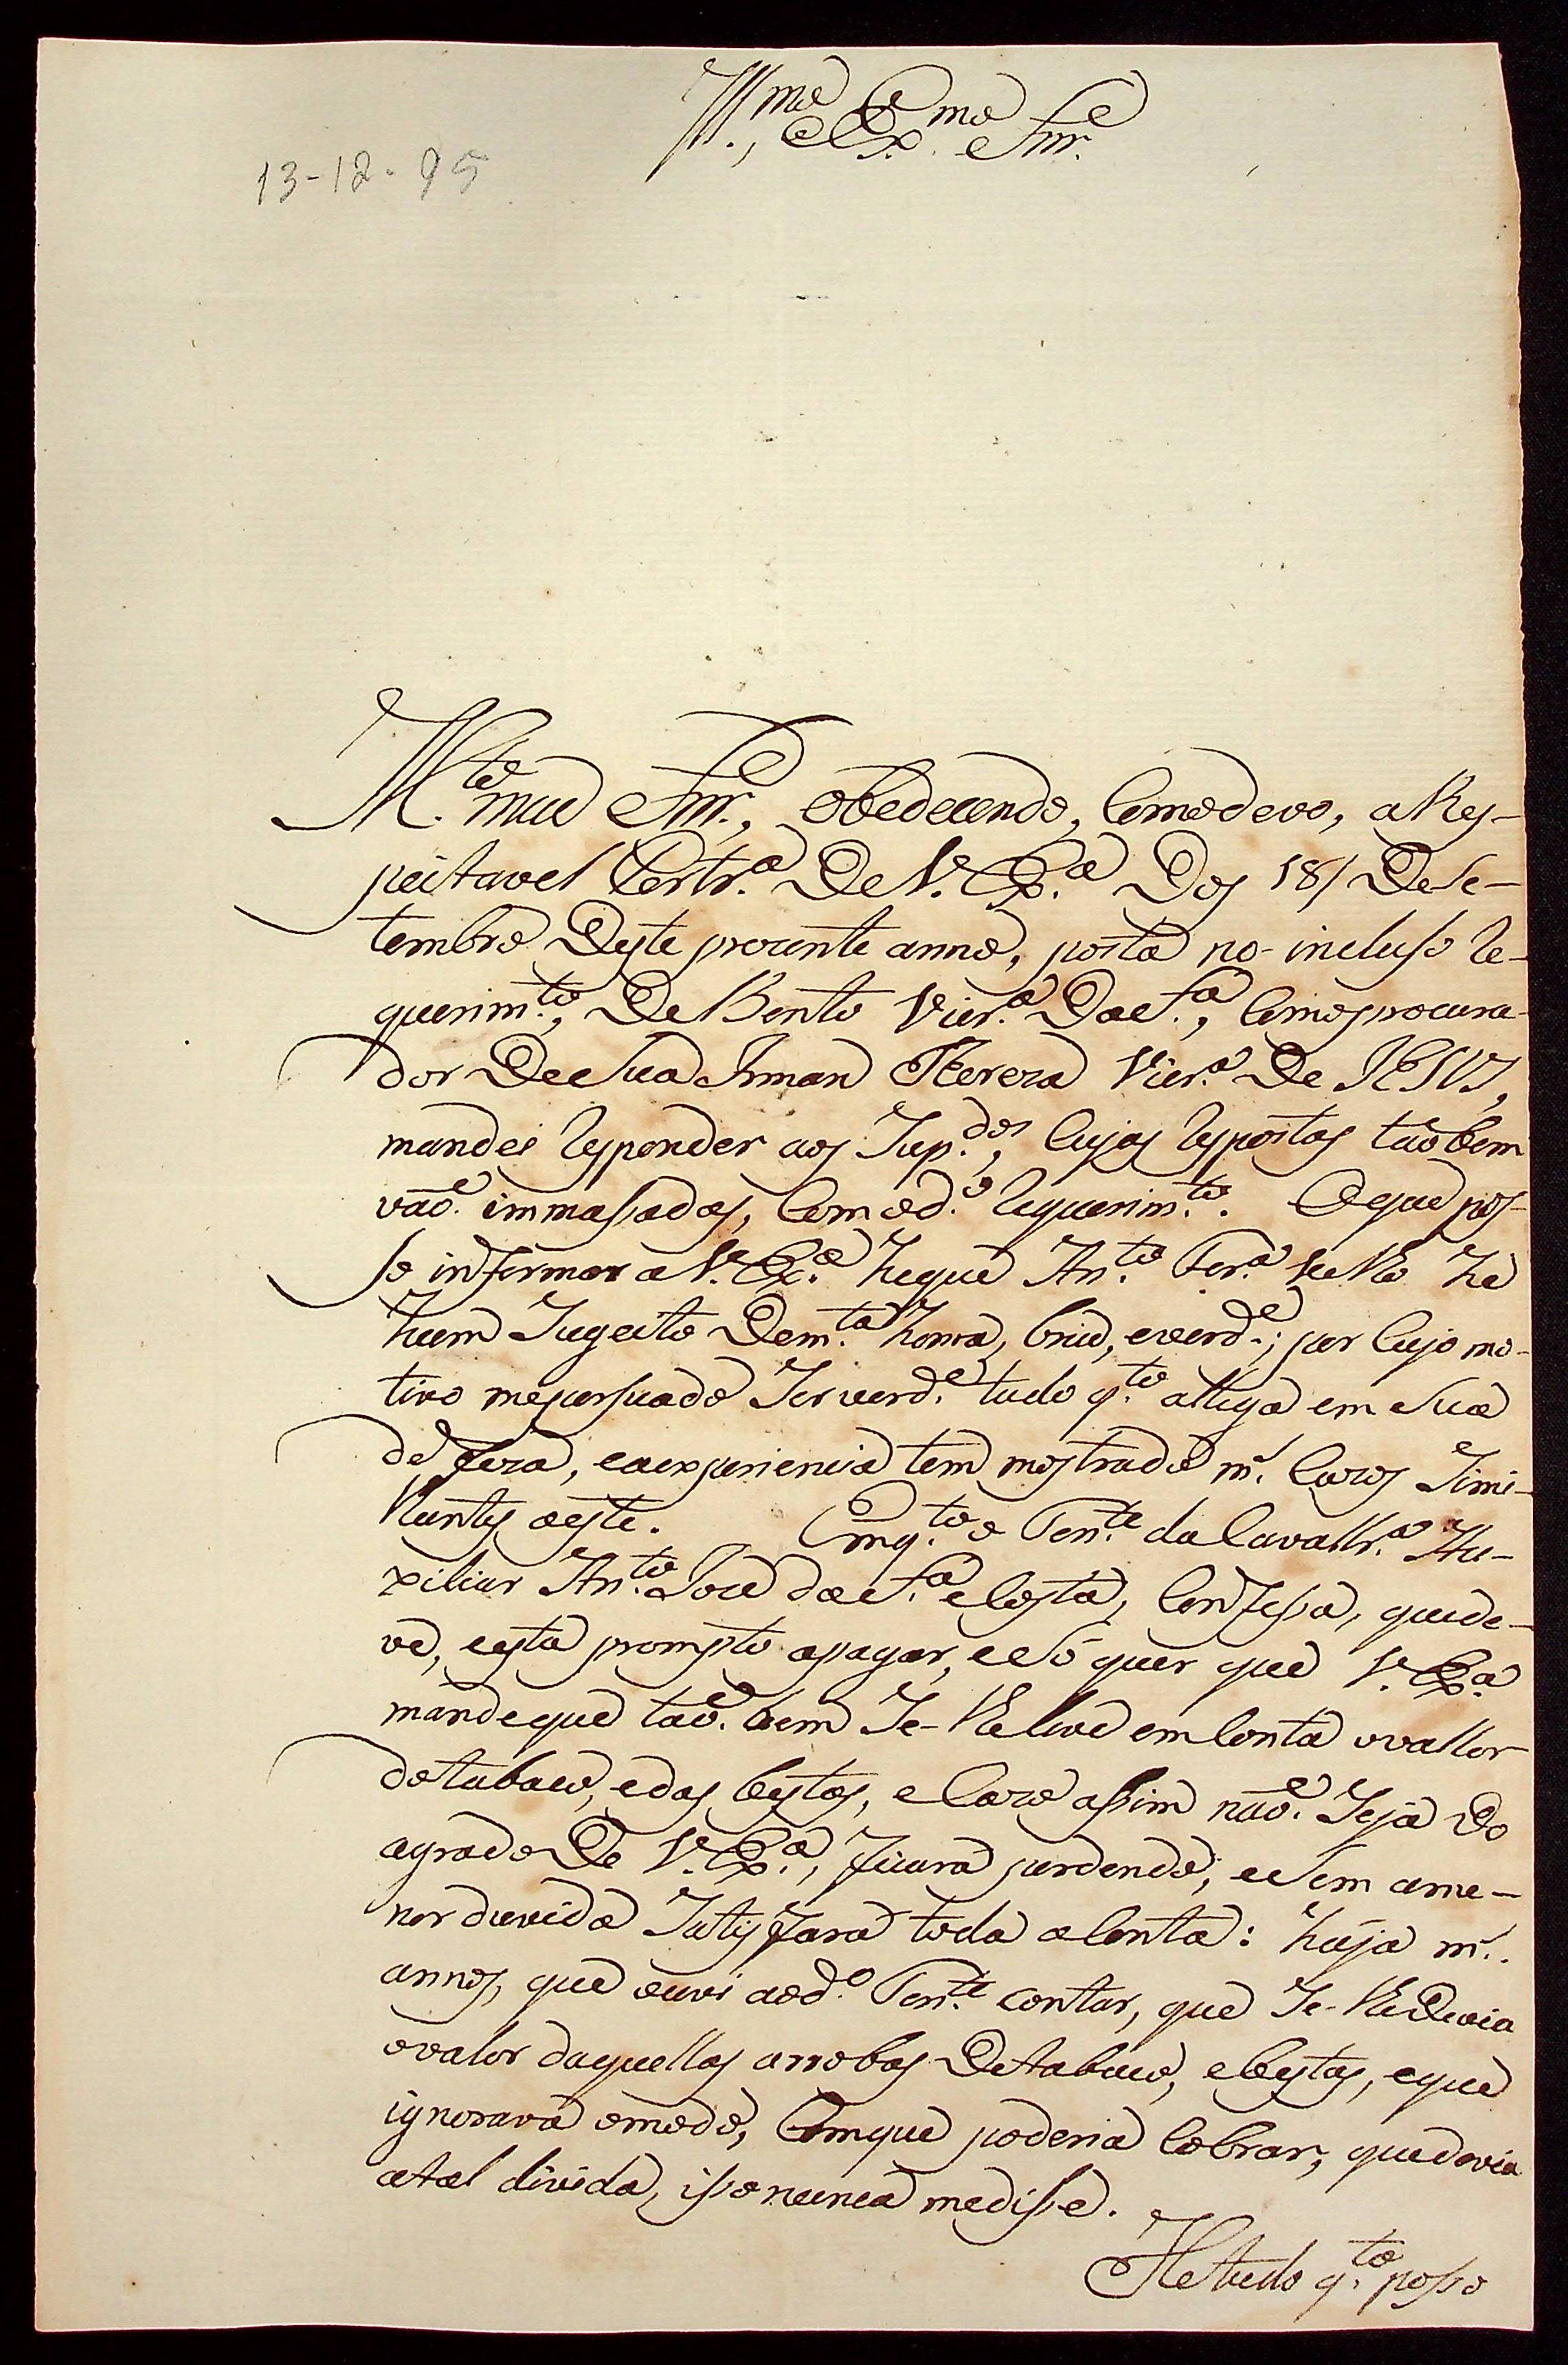 Ill.mo, e Ex.mo Snr.
13-12-95
M.to meu Snr., obedecendo, como devo, a Res-
peitavel Portr.a De V. Ex.a Dos 18/ De Se-
tembro Deste prezente anno, posta no incluso re-
querim.to, De Bento Vieir.a Da S.a, como procura-
dor De Sua Irman Thereza Vieir.a De JESUS,
mandei responder aos Sup.dos, cujas respostas tãobem
vão immassadas, com o d.o requerim.to. O que pos-
so informar a V. Ex.a he que An.to Ferr.a Velho he
hum Sugeito De m.ta honra, briu, e verd.e; por cujo mo-
tivo me persuado Ser verd.e tudo q.to allega em Sua
defeza, e a experiencia tem mostrado m.s cazos Simi-
lhantes a este. Emq.to o Ten.te da Cavallr.a Au-
xiliar An.to Joze da S.a e Costa, confessa, que de-
ve, e esta prompto a pagar, e Só quer que V. Ex.a
mande que tão bem Se lhe leve em conta o vallor
do tabaco, e das bestas, e cazo assim não Seja do
agrado De V. Ex.a, ficara perdendo, e Sem a me-
nor duvida Satisfara toda a conta: haja m.s
annos, que ouvi ao d.o Ten.te contar, que Se lhe Devia
o valor daquellas arrobas De tabaco, e bestas, e que
ignorava o modo, Com que poderia cobrar, que devia
a tal divida, isso nunca me disse.
He tudo q.to posso